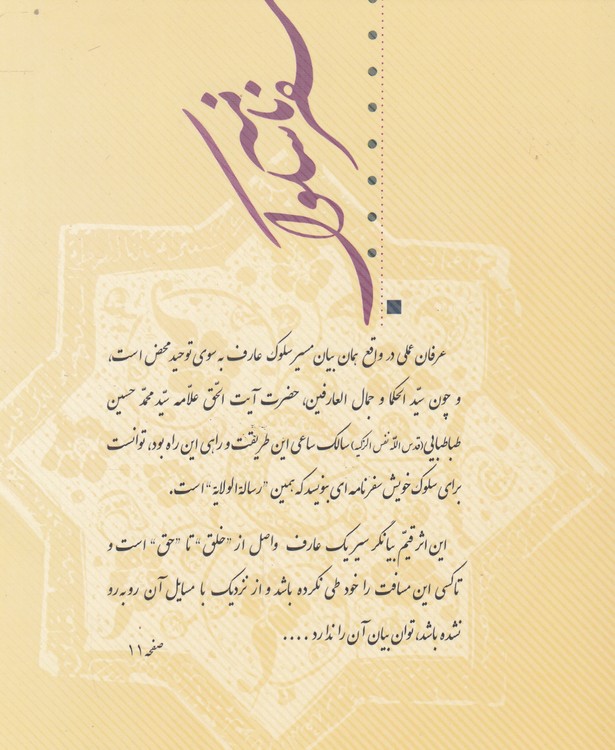 سفرنامه سلوک
عرفان عملی در واقع همان بیان مسیر سلوک عارف به سوی توحید محض است،
و چون سیّد الحکما و جمال العارفین، حضرت آیت الحقّ علاّمه سیّد محمّد حسین
طباطبایی (قدس اللّه نفس الزکیه) سالک ساعی این طریقت و راهی این راه بود، توانست
برای سلوک خویش سفرنامه ای بنویسد که همین "رسالة الولایة" است.
این اثر قیّم بیانگر سیر یک عارف واصل از "خلق" تا "حق" است و
تا کسی این مسافت را خود طی نکرده باشد و از نزدیک با مسایل آن روبه رو
نشده باشد، توان بیان آن را ندارد ....
صفحه ۱۱